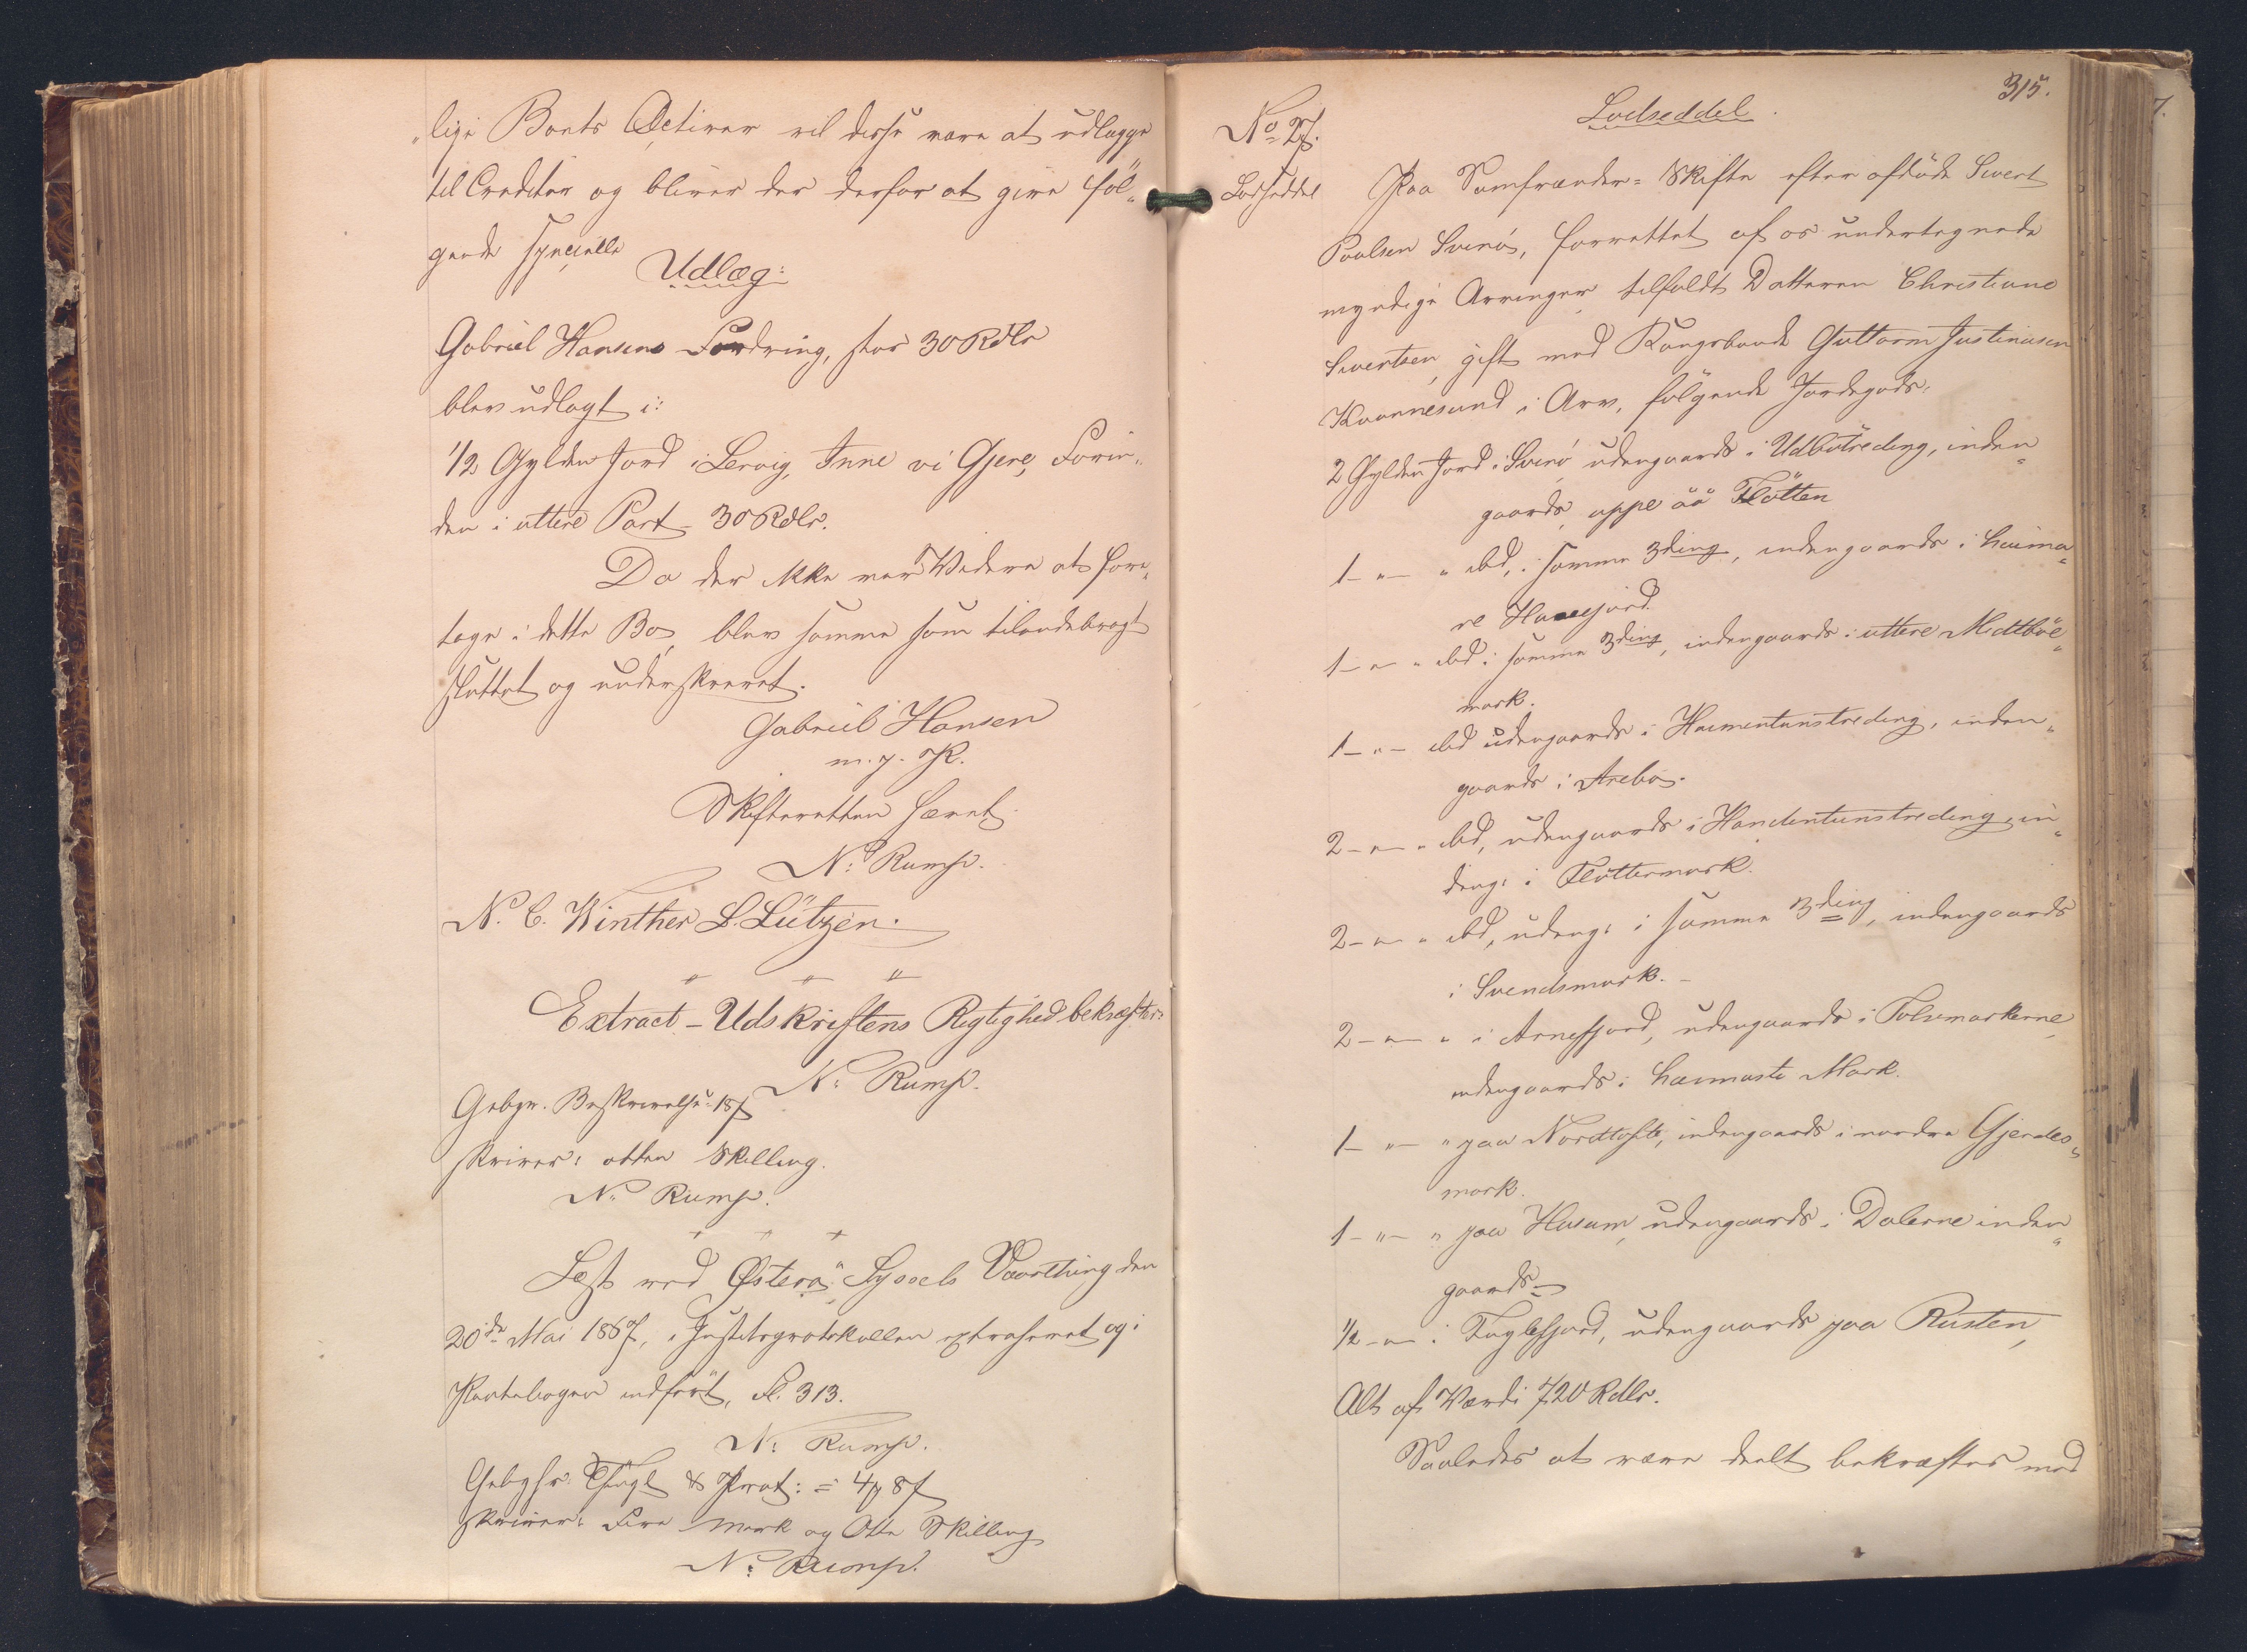 „lige Boets Activer vil disse være at udlægge
til Creditor og bliver der derfor at give føl„
gende specielle
Udlæg:
Gabriel Hansens Fordring, stor 30 Rdlr
blev udlagt i:
1/2 Gylden Jord i Lervig, Inne vi Gjere, Forin„
den i uttere Part – 30 Rdlr.
Da der ikke var Videre at fore„
tage i dette Bo, blev samme som tilendebragt
sluttet og underskrevet.
Gabriel Hansen
m. p. P.
Skifteretten hævet
N: Rump.
N. C. Winther L. Lützen.
„ „ „
Extract-Udskriftens Rigtighed bekræfter:
N: Rump.
Gebyr. Beskrivelse: 18 ß
skriver: atten Skilling.
N: Rump.
Læst ved Østerø Syssels Vaarthing den
20de Mai 1867, i Justitsprotokollen extraheret og i
Pantebogen indført, Fl. 313.
N: Rump.
Gebyhr: Thingl & Prot: = 4 ꝟ 8 ß
skriver: Fire Mark og Otte Skilling
N: Rump.
315.
No 27.
Lodseddel
Lodseddel.
Paa Samfrænder-Skifte efter afdøde Sivert
Poulsen Svinø, forrettet af os undertegnede
myndige Arvinger, tilfaldt Datteren Christiane
Sivertsen, gift med Kongsbonde Guttorm Justinusen
Kvannesund i Arv, følgende Jordegods:
2 Gylden Jord i Svinø udengaards i Udbøtreding, inden„
gaards, uppe áá Fløtten
1 – „ – „ ibd, i samme 3ding, indengaards i heima„
re
1 – „ – „ ibd. i samme 3ding, indengaards i uttere Midtbøe„
mark.
1 – „ – ibd udengaards i Heimentunstreding, inden„
gaards i Arebø.
2 – „ – „ ibd, udengaards i Handentunstreding, in„
deng: i Fløttermark.
2 – „ – „ ibd, udeng: i samme 3ding, indengaards
i Svendsmark. –
2 – „ – „ i Arnefjord, udengaards i Tolvmarkerne
indengaards i heimasti Mark.
1 – „ – „ paa Nordtofte, indengaards i nordre Gjerdes„
mark.
1 – „ – „ paa Husum, udengaards i Dalerne inden„
gaards –
1/2 – „ – i Fuglefjord, udengaards paa Rusten,
Alt af Værdi 720 Rdlr.
Saaledes at være deelt bekræftes med